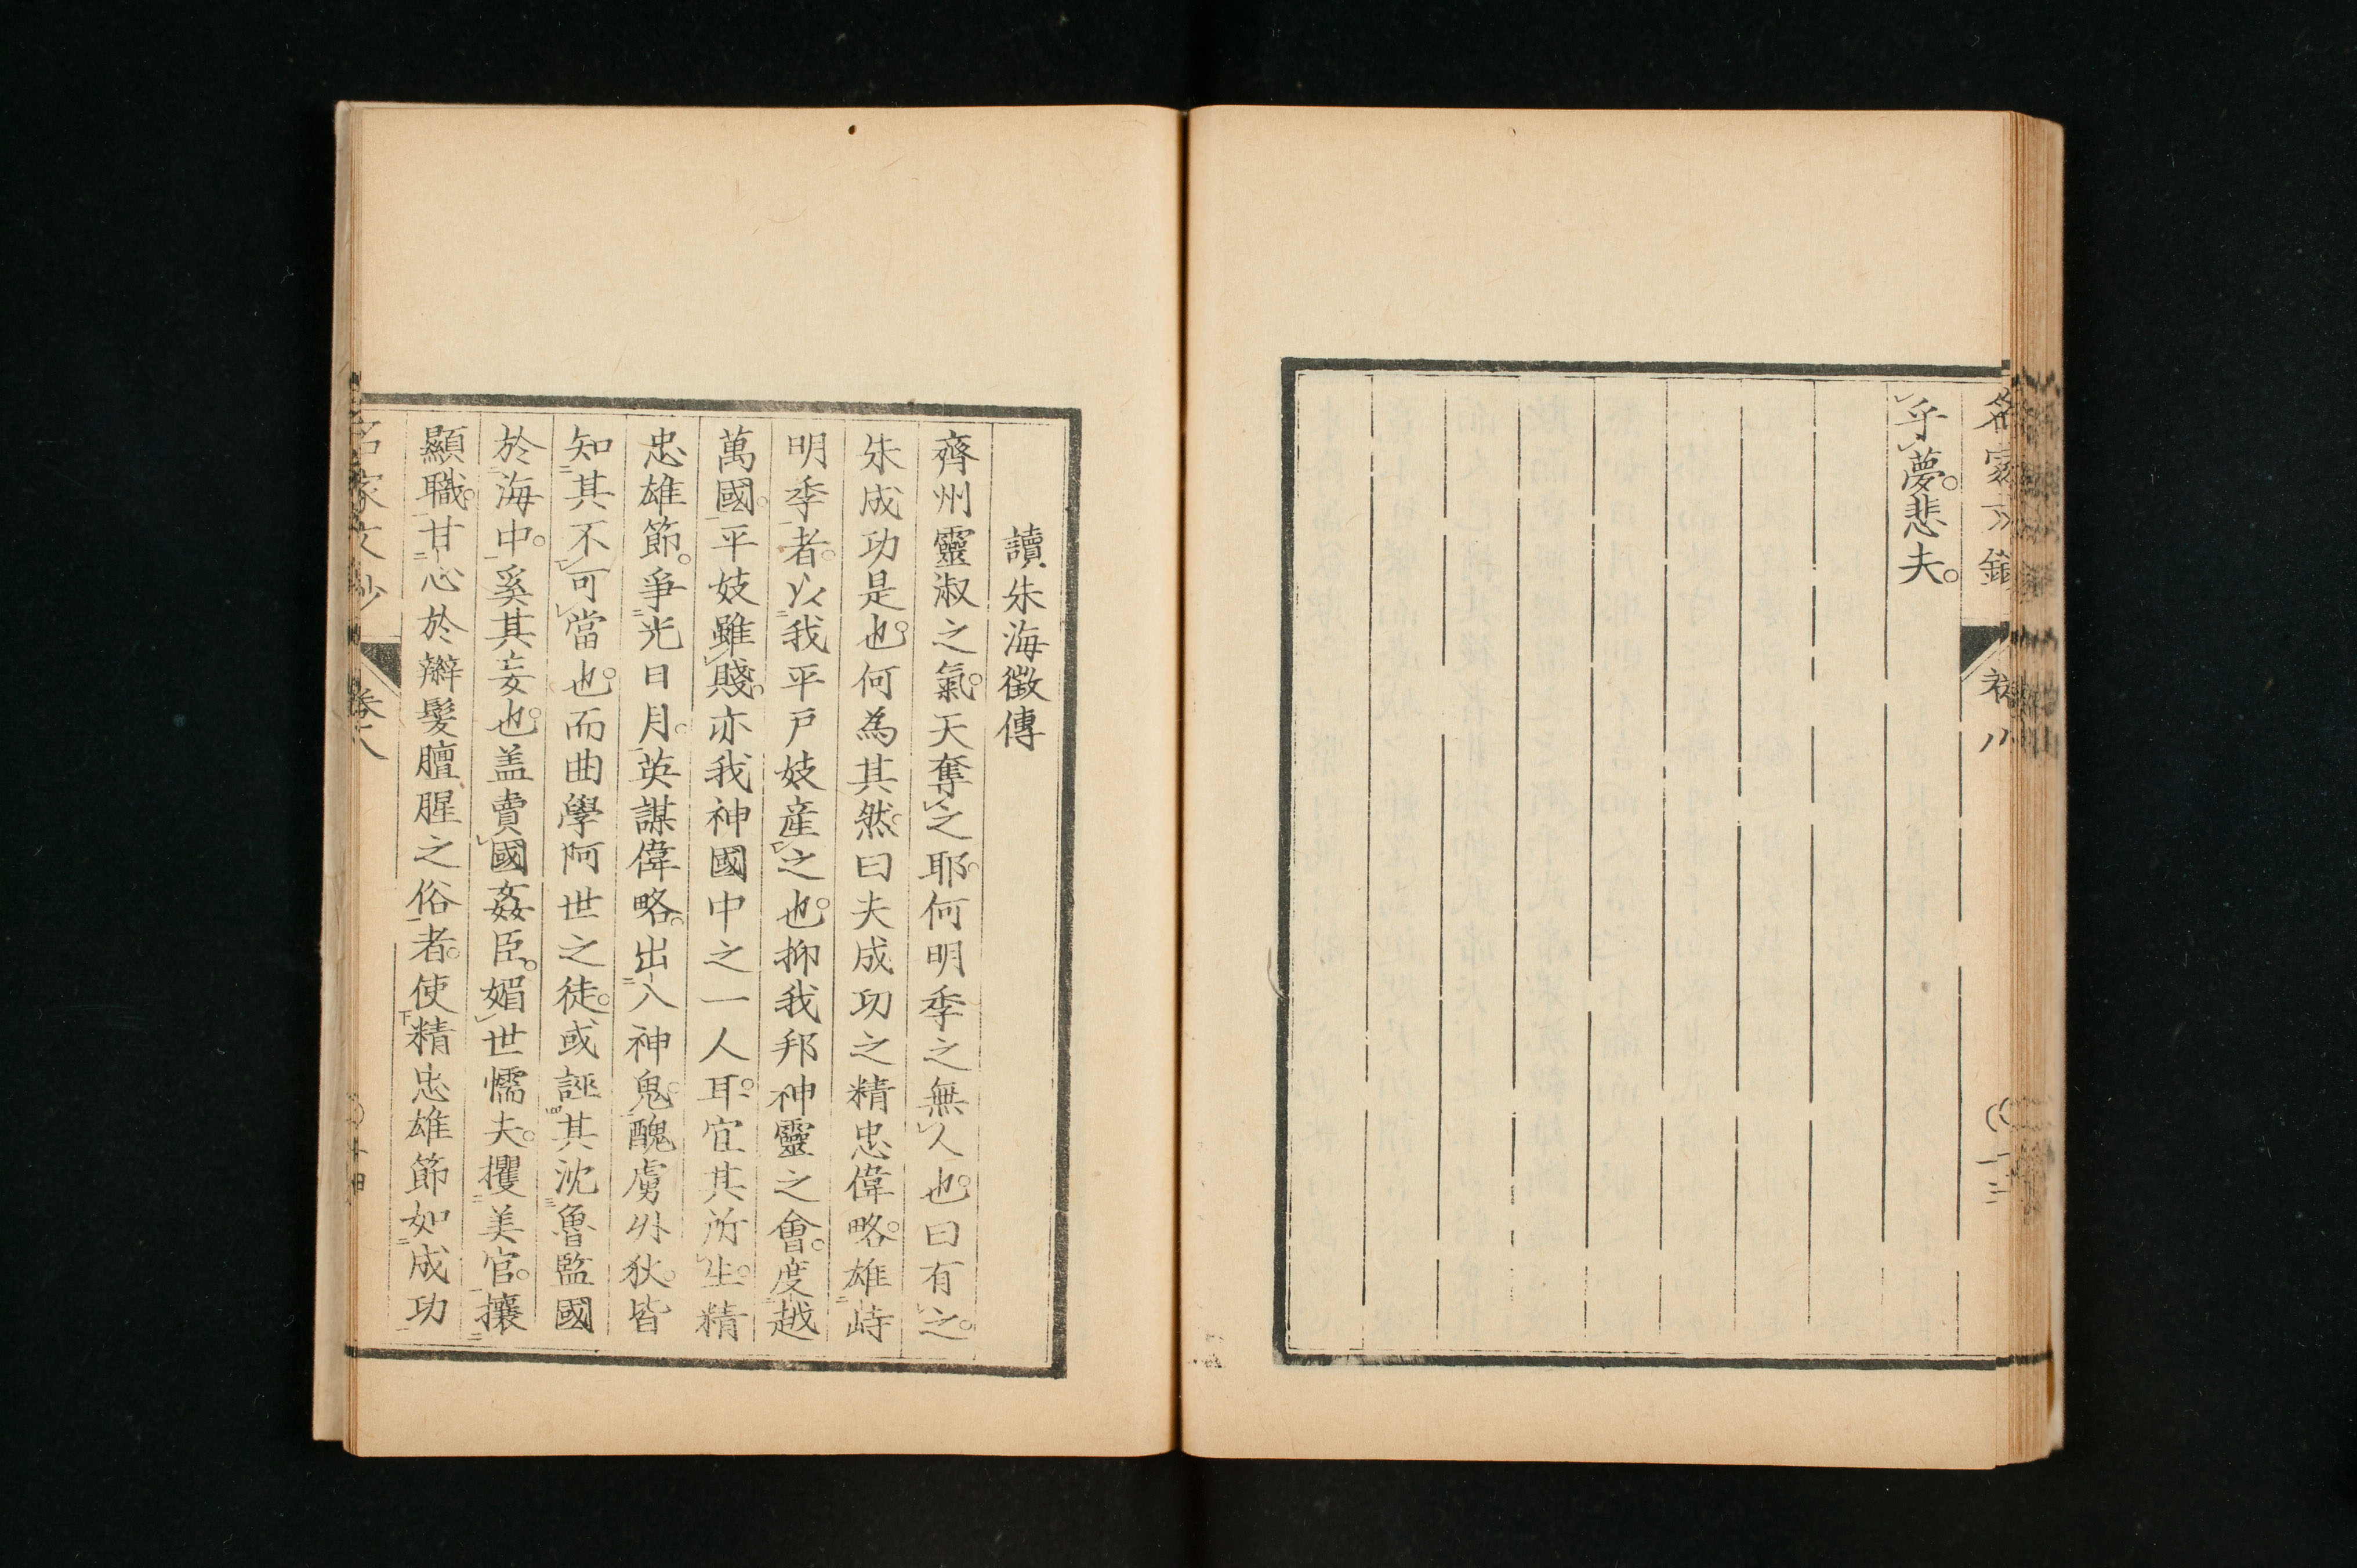 乎夢。悲夫。
讀朱海徵傳
齊州靈淑之氣。天奪之耶。何明季之無人也。曰有之。
朱成功是也。何為其然。曰夫成功之精忠偉略。雄峙
明季者。以我平戶妓產之也。抑我邦神靈之會。度越
萬國。平妓雖賤。亦我神國中之一人耳。宜其所生。精
忠雄節。爭光日月。英謀偉略。出入神鬼。醜虜外狄。皆
知其不可當也。而曲學阿世之徒。或誣其沈魯監國
於海中。奚其妄也。盖賣國姦臣。媚世懦夫。攫美官。攘
顯職。甘心於辮髮膻腥之俗者。使精忠雄節如成功
名家文抄 卷八 十四